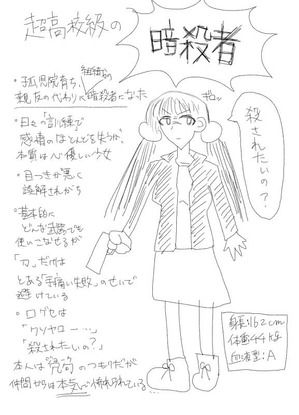 超高校級の
暗殺者
・孤児院育ち、
親友の代わりに暗殺者になった
・日々の「訓練」で
感情のほとんどを失うが、
本質は心優しい少女
・目つきが悪く
誤解されがち
・基本的に
どんな武器でも
使いこなせるが
「刀」だけは
とある「手痛い失敗」のせいで
避けている
・口グセは
「クソヤロー…」
「殺されたいの?」
本人は
のつもりだが
仲間からは本気で怖れられている
ギロッ
殺されたいの?
身長162cm
体重44kg
血液型:A